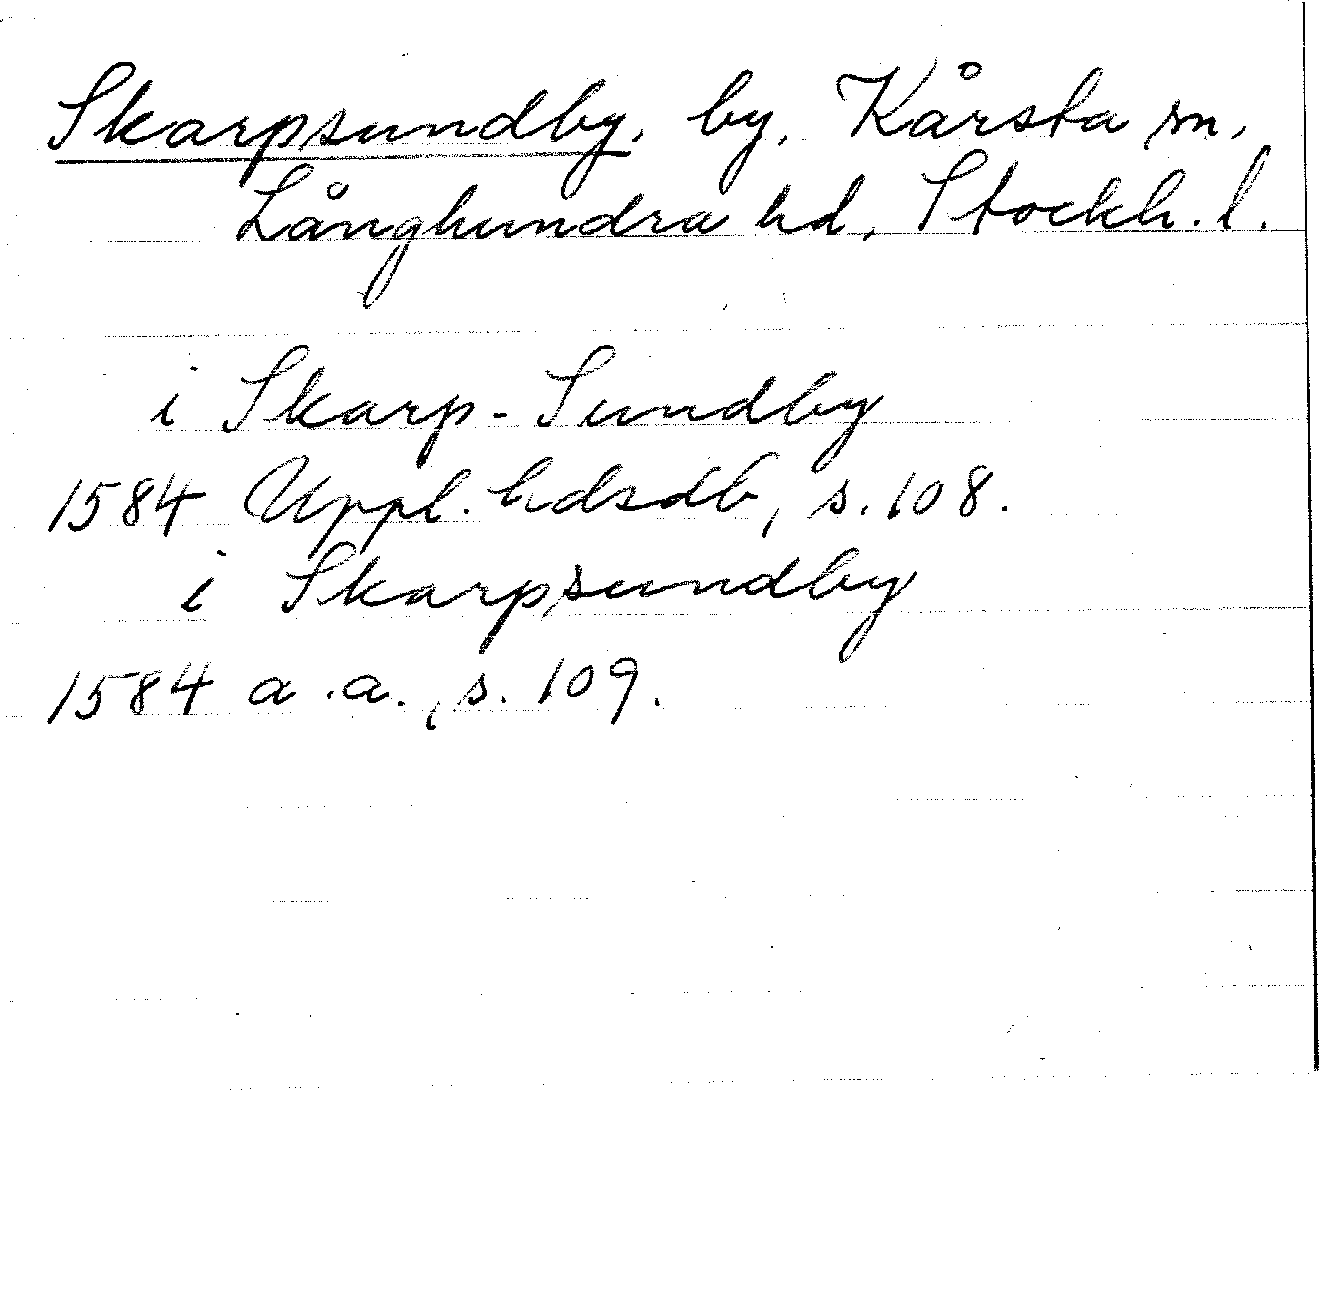 Skarpsundby, by, Kårsta sn,
Långhundra hd, Stockh. l.
i Skarp-Sundby
1584 Uppl. hdsdb, s. 108.
i Skarpsundby
1584 a.a., s. 109.